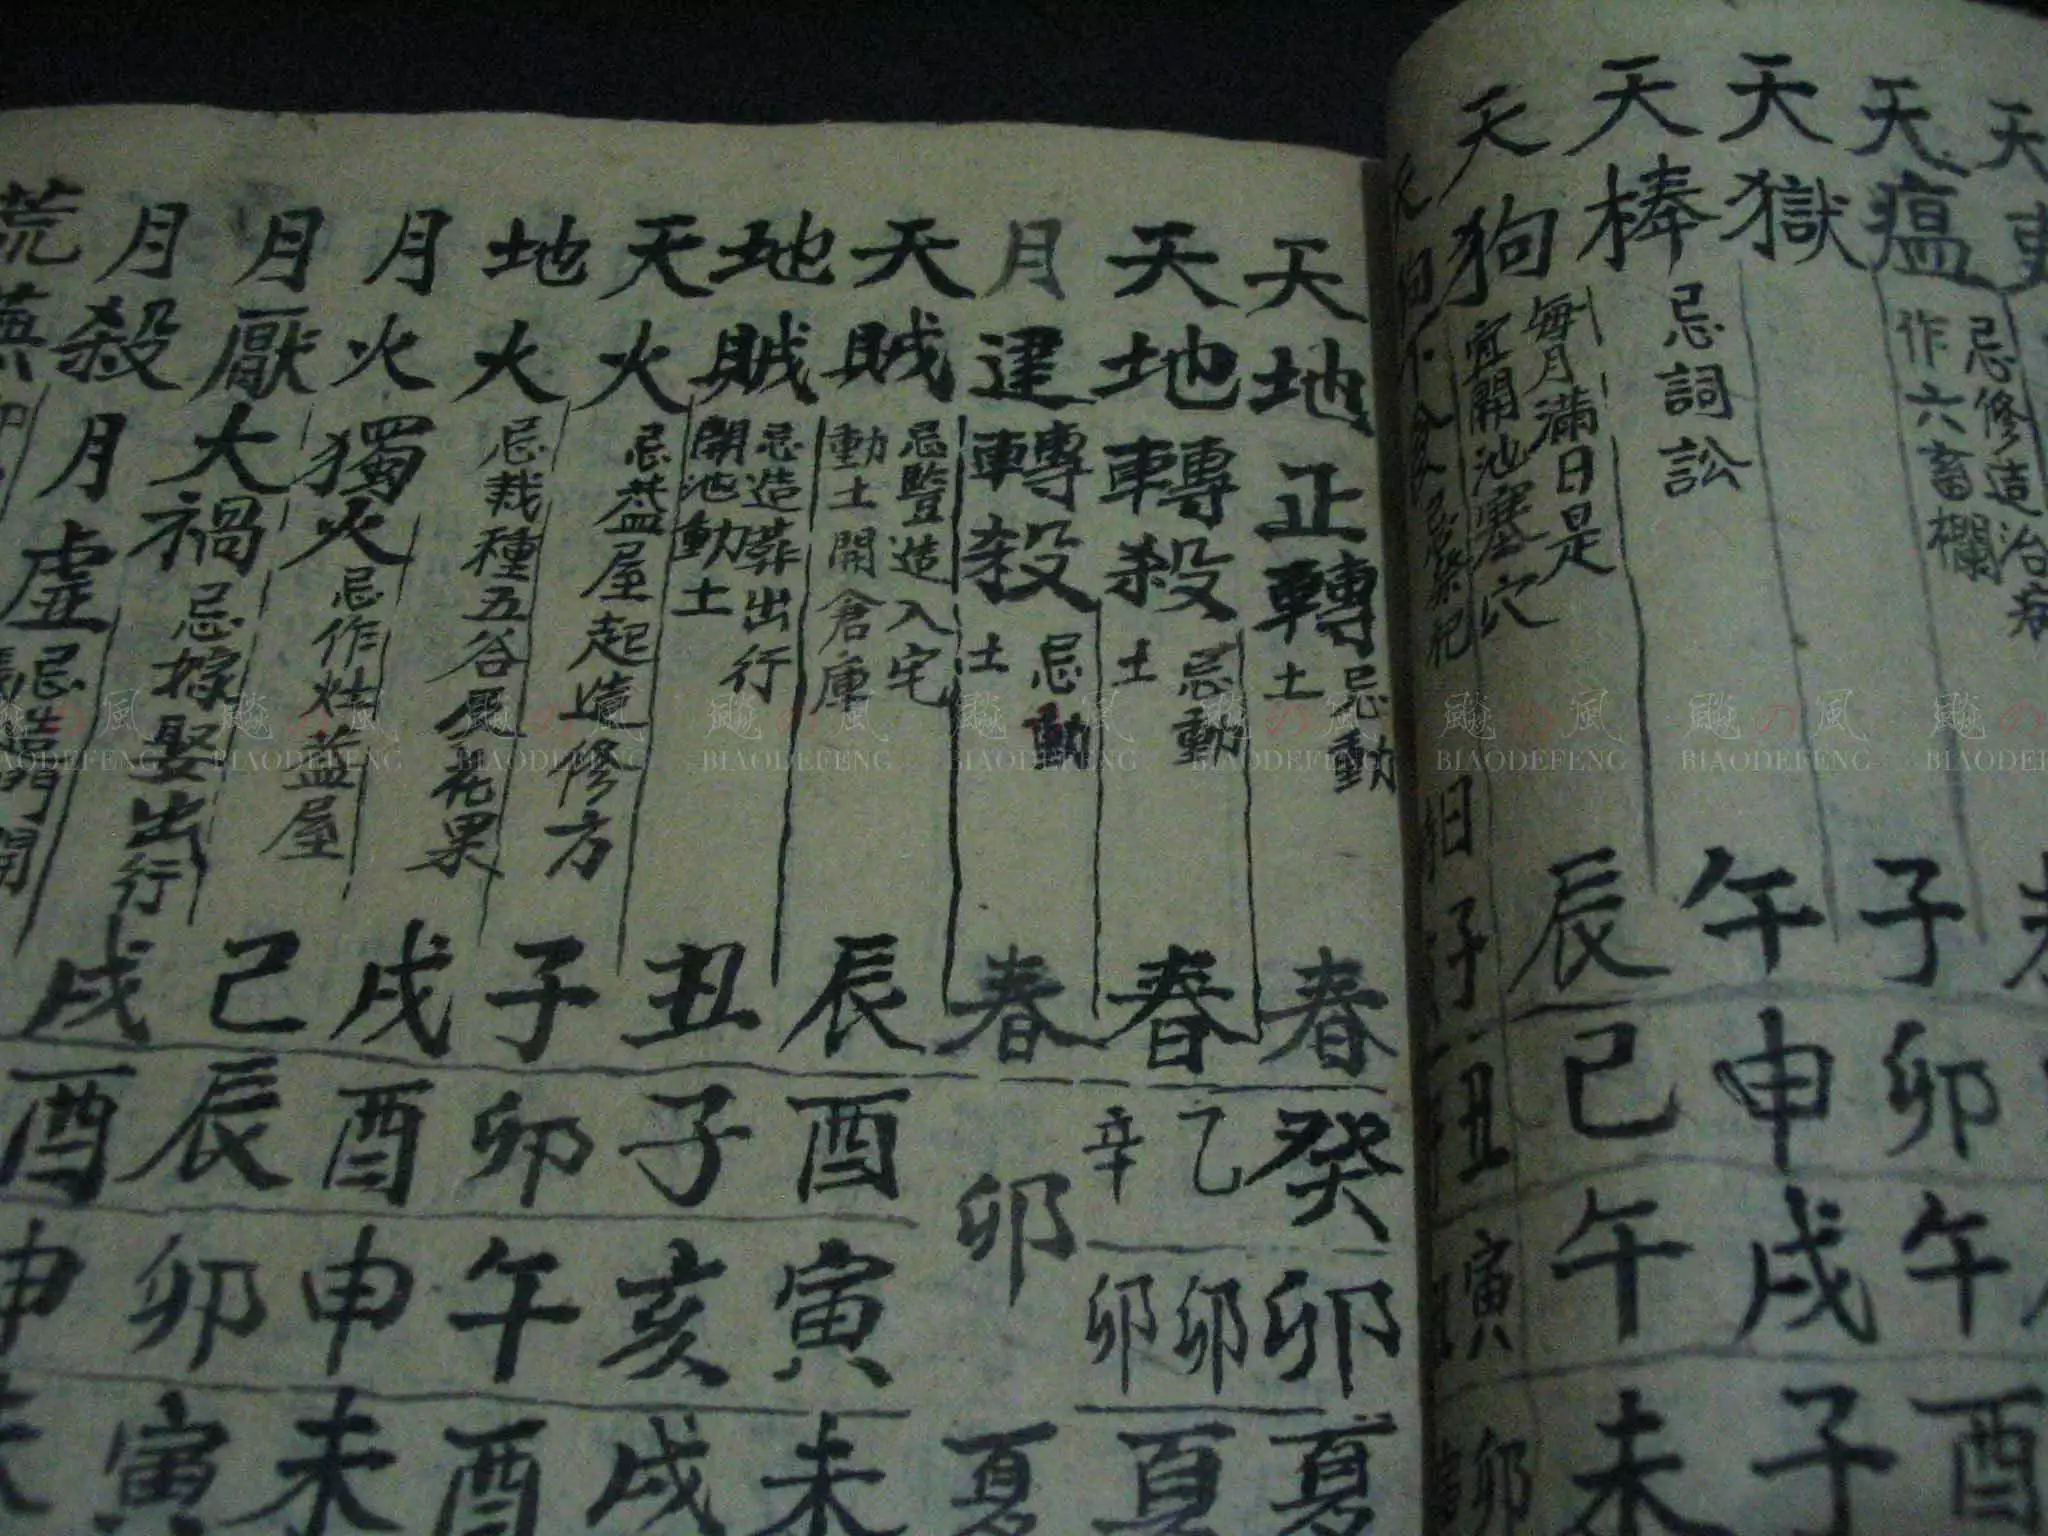 天瘟
忌修造治病
作六畜欄
子
卯
午
酉
天獄
午
申
戌
子
天棒
忌詞訟
辰
巳
午
未
天狗
每月滿日是
宜開池塞穴
子
丑
寅
卯
天地正轉
忌動
土
春
癸
卯
夏
天地轉殺
忌動
土
春
乙 辛
卯 卯
夏
月建轉殺
忌動
土
春
卯
夏
天賊
忌豎造入宅
動土開倉庫
辰
酉
寅
未
地賊
忌造葬出行
開池動土
丑
子
亥
戌
天火
忌蓋屋起造修方
子
卯
午
酉
地火
忌栽種五谷及花果
戌
酉
申
未
月火獨火
忌作灶蓋屋
巳
辰
卯
寅
月厭大禍
忌嫁娶出行
戌
酉
申
未
月殺月虛
荒蕪
飈の風
BIAODEFENG